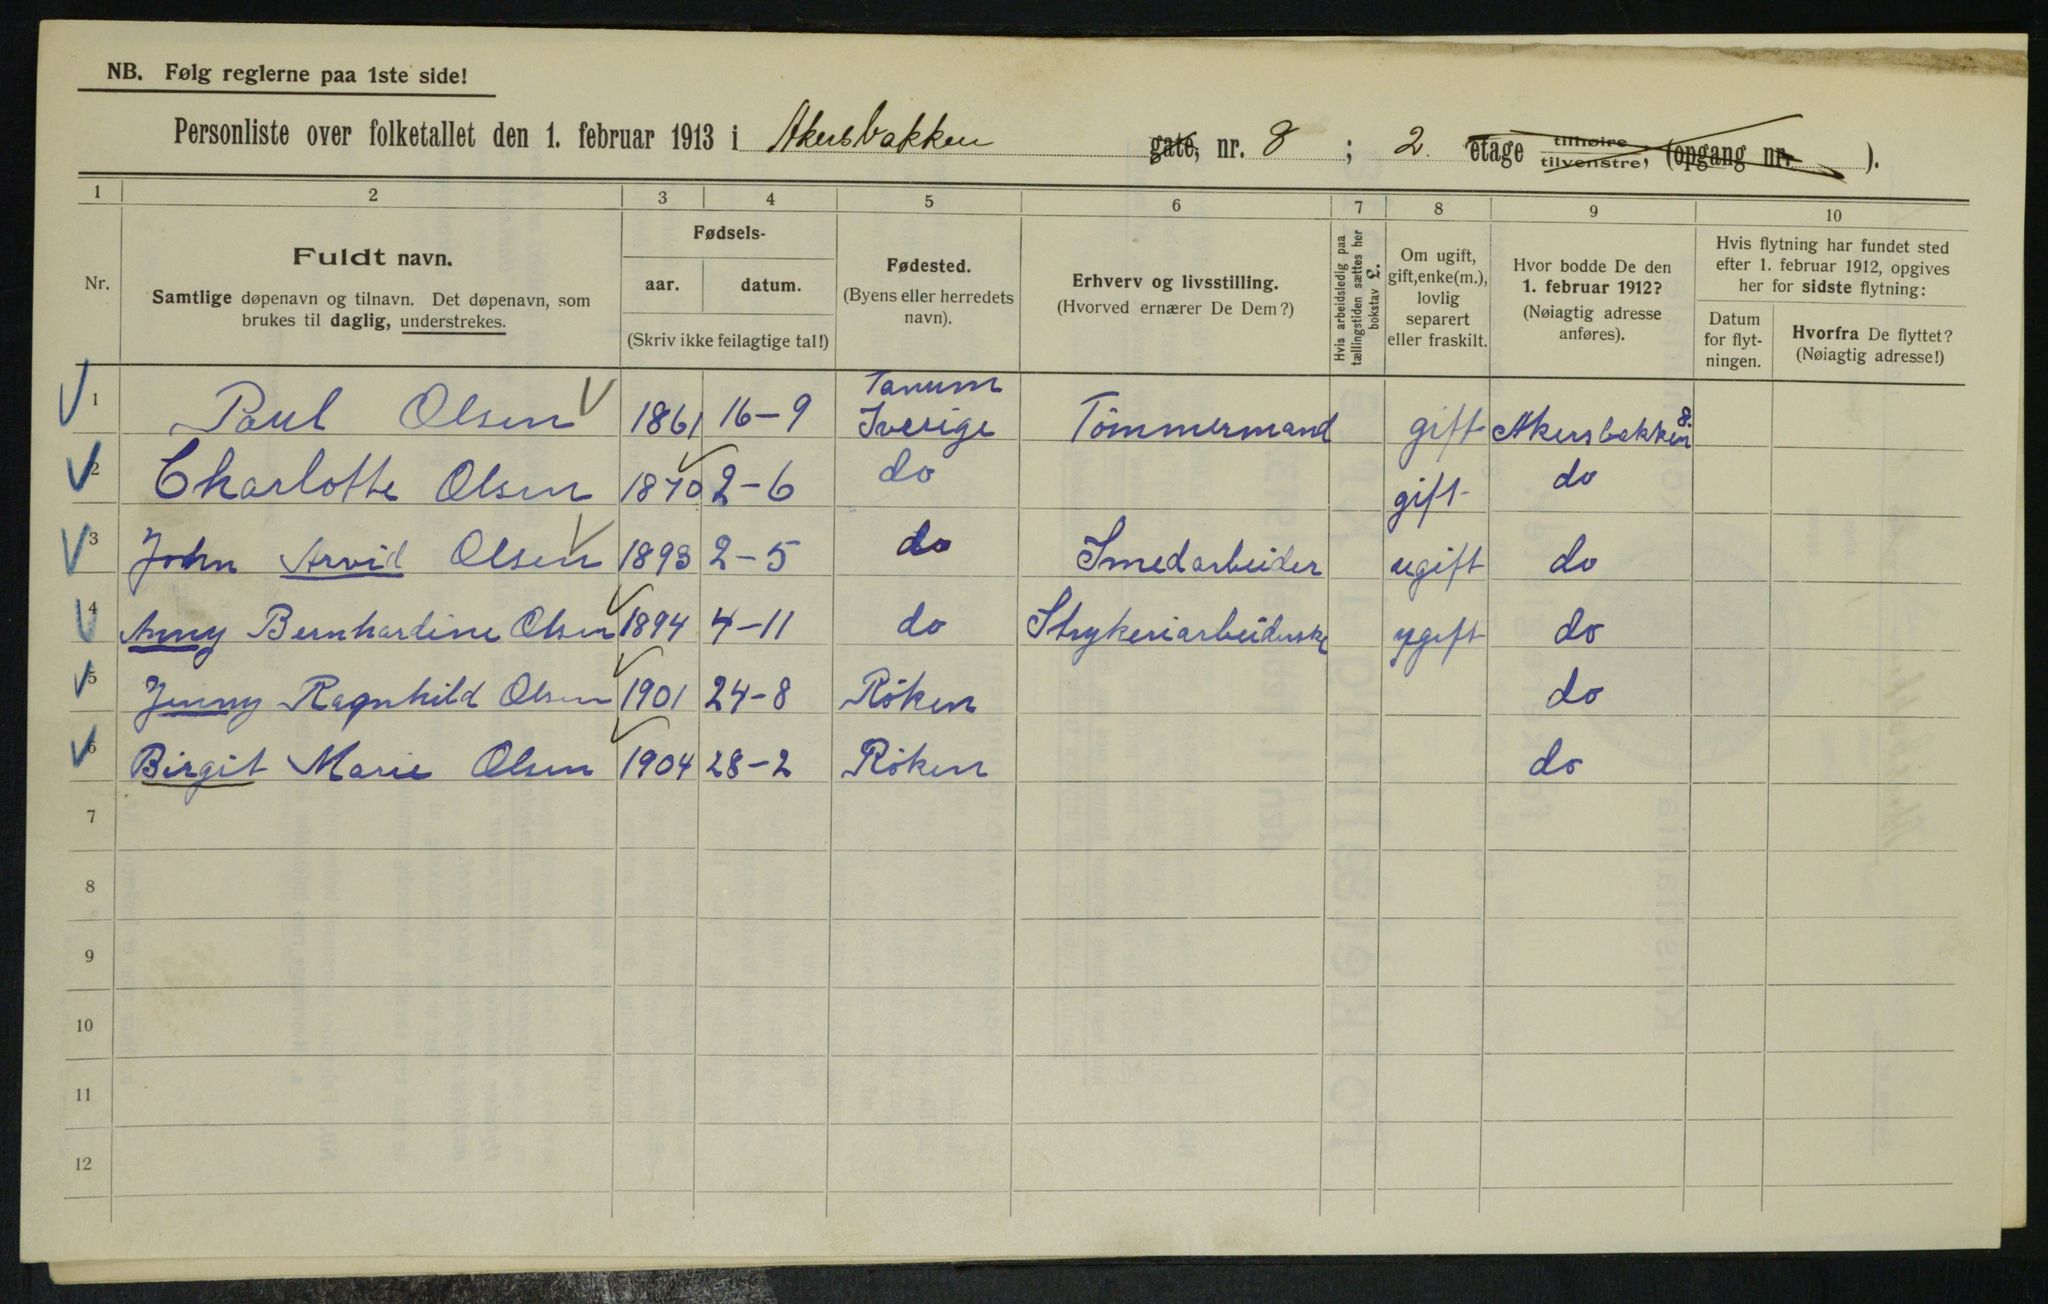 NB. Følg reglerne paa 1ste side!
Personliste over folketallet den 1. februar 1913 i Akersbakken gate, nr. 8 ; 2. etage tilhøire tilvenstre, (opgang nr. ).
1 2 3 4 5 6 7 8 9 10
Nr.
Fuldt navn.
Samtlige døpenavn og tilnavn. Det døpenavn, som
brukes til daglig, understrekes.
Fødsels-
aar. datum.
(Skriv ikke feilagtige tal!)
Fødested.
(Byens eller herredets
navn).
Erhverv og livsstilling.
(Hvorved ernærer De Dem?)
Hvis arbeidsledig paa
tællingstiden sættes her
bokstav L.
Om ugift,
gift, enke(m.),
lovlig
separert
eller fraskilt.
Hvor bodde De den
1. februar 1912?
(Nøiagtig adresse
anføres).
Hvis flytning har fundet sted
efter 1. februar 1912, opgives
her for sidste flytning:
Datum
for flyt-
ningen.
Hvorfra De flyttet?
(Nøiagtig adresse!)
1 Paul Olsen 1861 16-9 Tanum Sverige Tömmermand gift Akersbakken 8.
2 Charlotte Olsen 1870 2-6 do gift do
3 John Arvid Olsen 1893 2-5 do Smedarbeider ugift do
4 Anny Bernhardine Olsen 1894 4-11 do Strykeriarbeiderske ugift do
5 Jenny Ragnhild Olsen 1901 24-8 Röken do
6 Birgit Marie Olsen 1904 28-2 Röken do
7
8
9
10
11
12